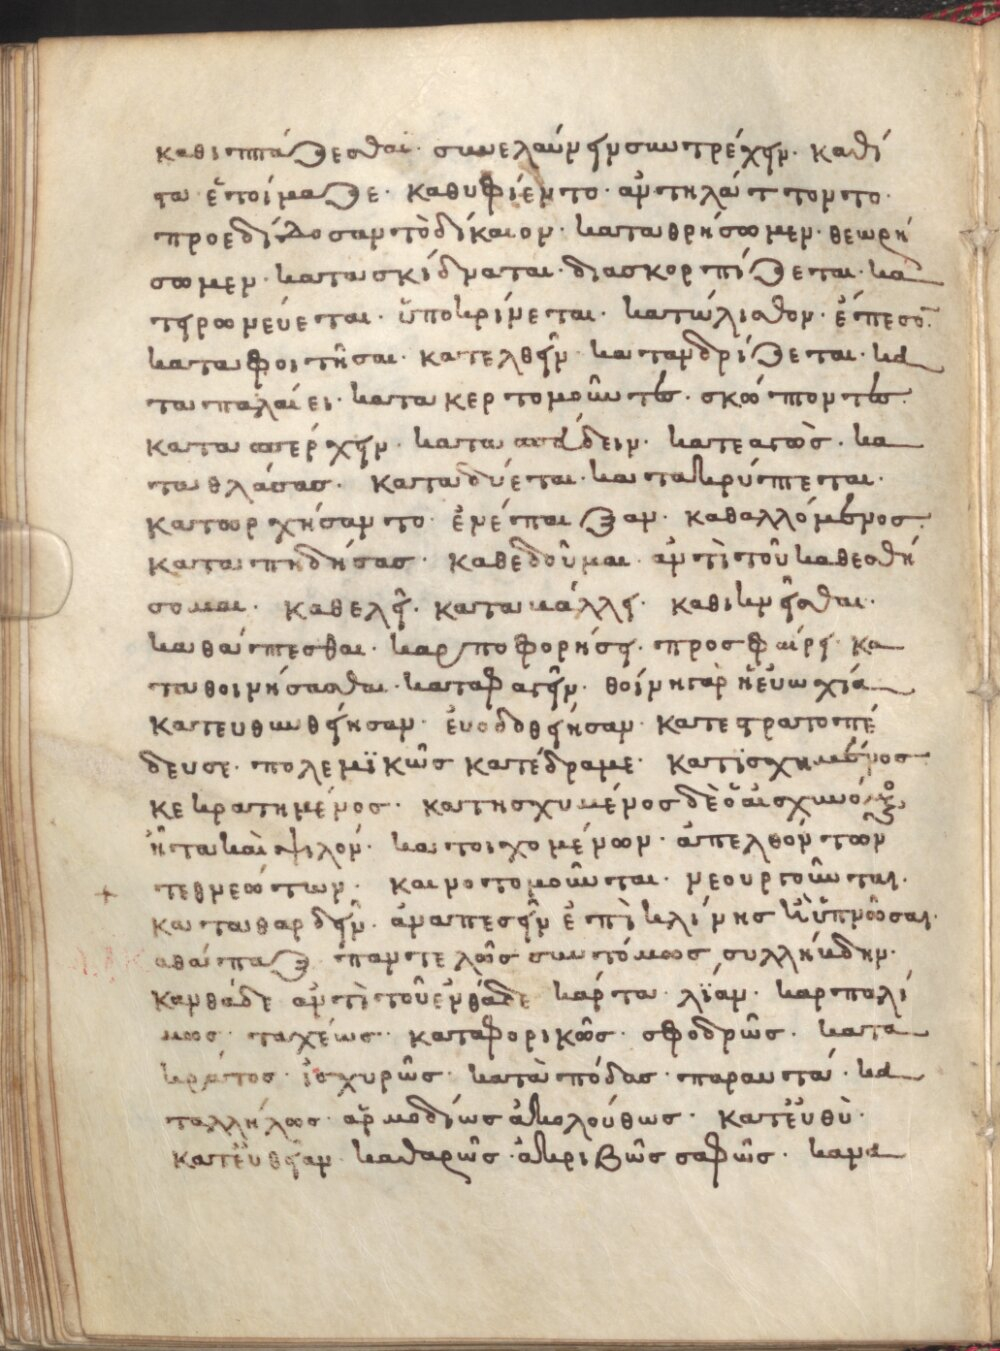 καθιππάζεσθαι· συνελαύνειν συντρέχειν· καθί
τα ἑτοίμαζε· καθυφίεντο· ἀντηλάττοντο·
προεδίδοσαν τὸ δίκαιον· καταθρήσωμεν· θεωρή
σωμεν· κατασκίδναται· διασκορπίζεται· κα
τειρωνεύεται· ὑποκρίνεται· κατώλισθον· ἔπεσον·
καταφοιτῆσαι· κατελθεῖν· κατανδρίζεται· κα
ταπαλαίει· κατακερτομοῦντες· σκώπτοντες·
κατασπέρχειν· κατασπεύδειν· κατεαγὼς· κα
ταθλάσας· καταδύεται· κατακρύπτεται·
κατωρχήσαντο· ἐνέπαιζαν· καθαλλόμενος·
καταπηδήσας· καθεδοῦμαι· ἀντὶ τοῦ καθεσθή
σομαι· καθελεῖ· καταβάλλει· καθικνεῖσθαι·
καθάπτεσθαι· καρποφορήσει· προσφέρει· κα
ταθοινήσασθαι· καταφαγεῖν· θοίνη γὰρ ἡ εὐωχία
κατευθυνθείησαν· εὐοδοθείησαν· κατεστρατοπέ
δευσε· πολεμϊκῶς κατέδραμε· κατϊσχημένος
κεκρατημένος· κατησχυμένος δὲ ὁ αἰσχυνόμενος
ἦτα καὶ ψιλόν· κατοιχομένων· ἀπελθόντων
τεθνεώτων· καινοτομοῦνται· νεουργοῦνται·
καταδαρθεῖν· ἀναπεσεῖν ἐπὶ κλίνης καὶ ὑπνῶσαι·
καθάπαξ παντελῶς συντόμως συλλήβδην·
κανθάδε ἀντὶ τοῦ ἐνθάδε κάρτα λίαν· καρπαλί
μως ταχέως· καταφορικῶς· σφοδρῶς· κατα
κράτος· ἰσχυρῶς· κατὰ πόδας· παραυτά· κα
ταλλήλως ἁρμοδίως ἀκολούθως· κατευθὺ·
κατευθεῖαν καθαρῶς· ἀκριβῶς σαφῶς· κανα